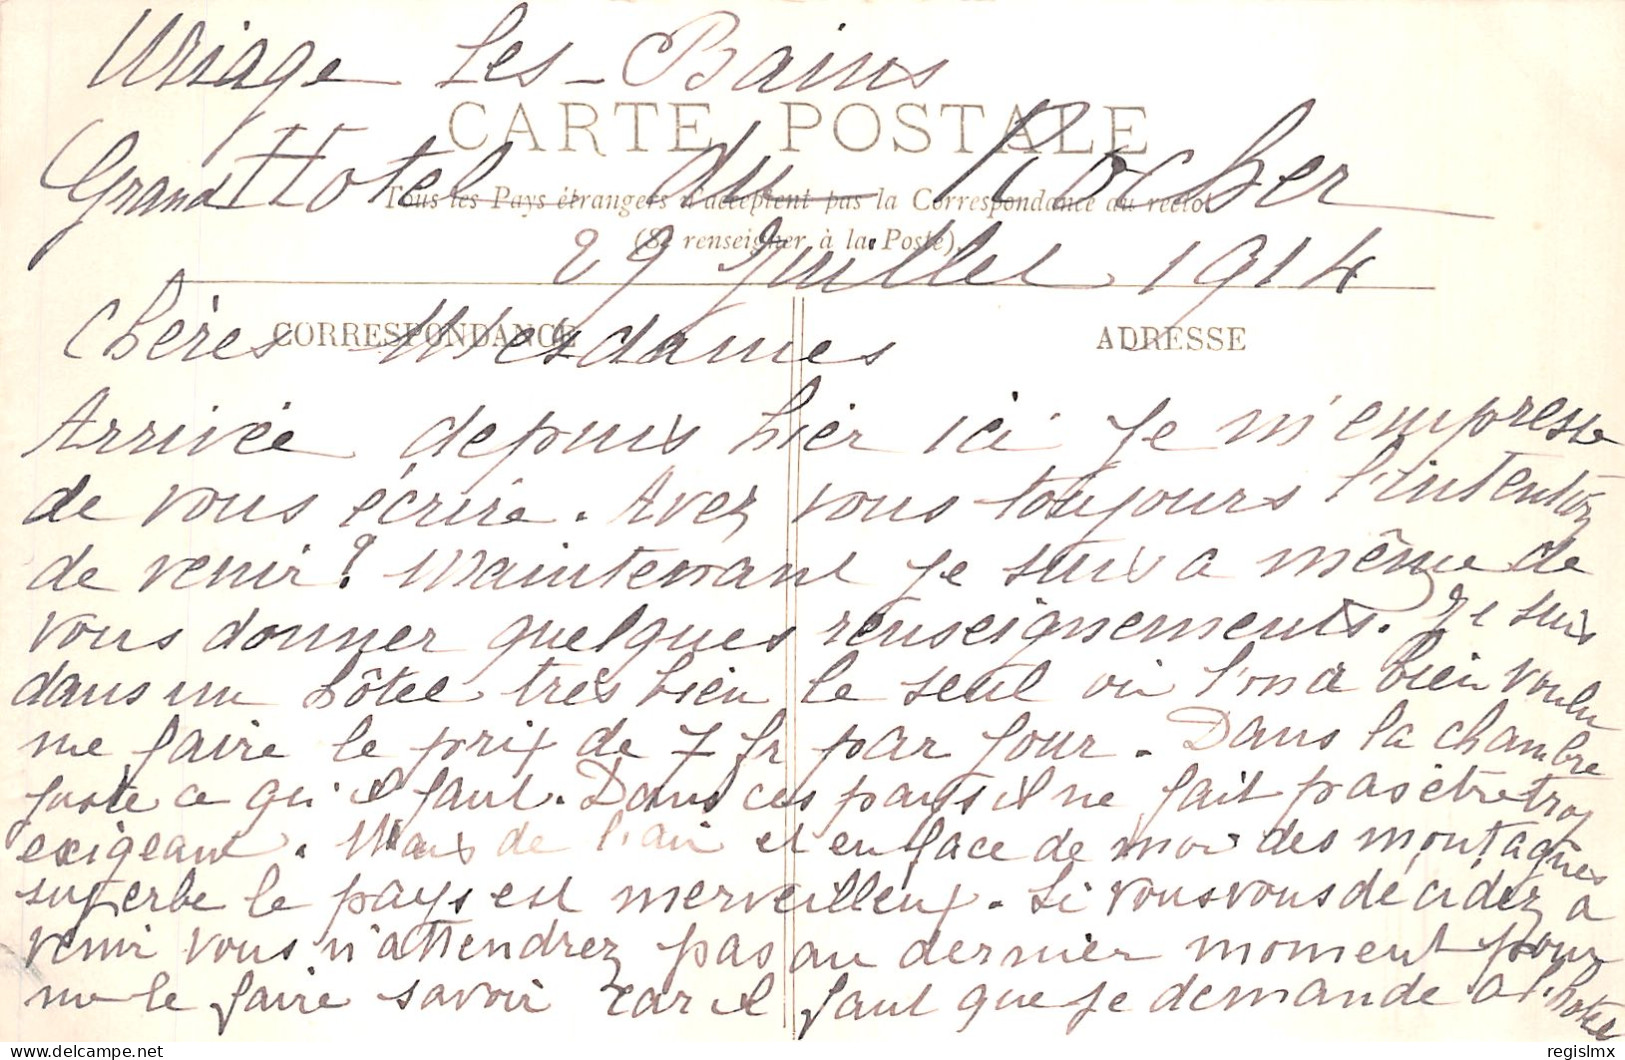 Uriage Les-Bains
CARTE POSTALE
Grand Hotel du Rocher
Tous les Pays étrangers n'acceptent pas la Correspondance au recto.
(Se renseigner à la Poste).
29 Juillet 1914
CORRESPONDANCE ADRESSE
Chères Mesdames
Arrivée depuis hier ici je m'empresse
de vous écrire. Avez vous toujours l'intention
de venir? Maintenant je suis a même de
vous donner quelques renseignements. Je suis
dans un hôtel très bien le seul où l'on a bien voulu
me faire le prix de 7 fr par jour. Dans la chambre
juste ce qu'il faut. Dans ces pays il ne fait pas être trop
exigeant. Mais de l'air et en face de moi des montagnes
superbe le pays est merveilleux. Si vous vous décidez a
venir vous n'attendrez pas au dernier moment pour
me le faire savoir car il faut que je demande a l'hotel
regislmx